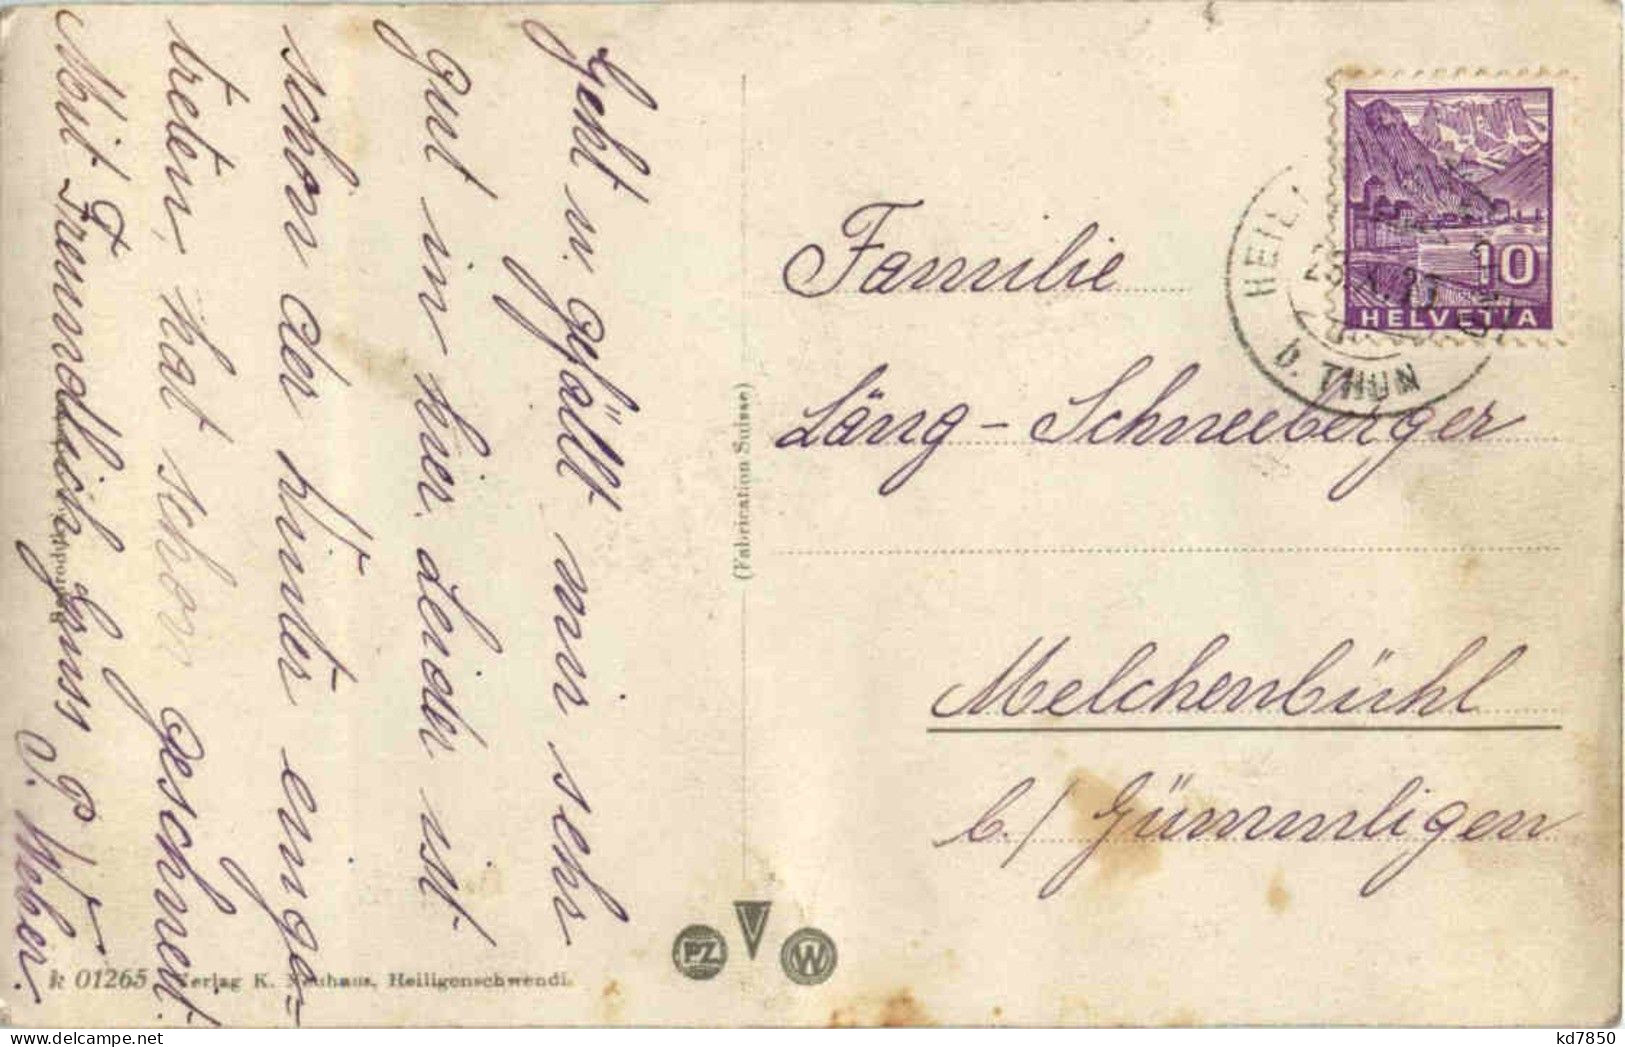 Geht u. gfällt mir sehr
gut im hier. Leider ist
schon der Winter einge-
treten, hat schon geschneit.
Mit Freundlich Gruss
S. Weber.
Familie
Läng-Schneeberger
Melchenbühl
b./ Gümmligen
HELVETIA
10
b. THUN
(Fabrication Suisse)
PZ
W
k 01265
Verlag K. Neuhaus, Heiligenschwendi.
kd7850